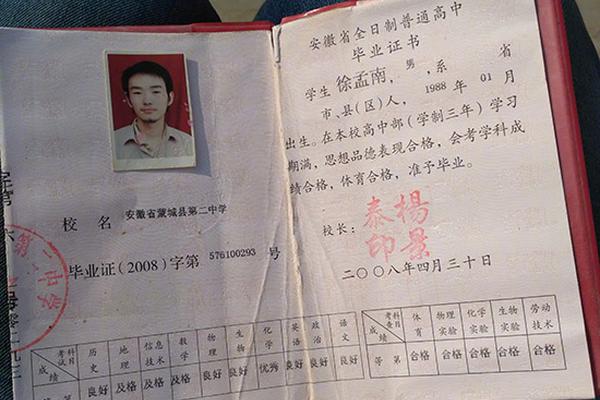 校名 安徽省蒙城县第二中学
毕业证(2008)字第 576100293 号
考试科目 历史 地理 信息技术 数学 物理 生物 化学 英语 政治 语文
成绩 良好 及格 及格 及格 良好 良好 优秀 良好 良好 良好
安徽省全日制普通高中
毕业证书
学生 徐孟南，男，系 省
市、县(区)人，1988 年 01 月
出生。在本校高中部(学制三年)学习
期满，思想品德表现合格，会考学科成
绩合格，体育合格，准予毕业。
校长：
楊景
泰印
二〇〇八年四月三十日
考查科目 体育 物理实验 化学实验 生物实验 劳动技术
成绩
等第 合格 合格 合格 合格 合格